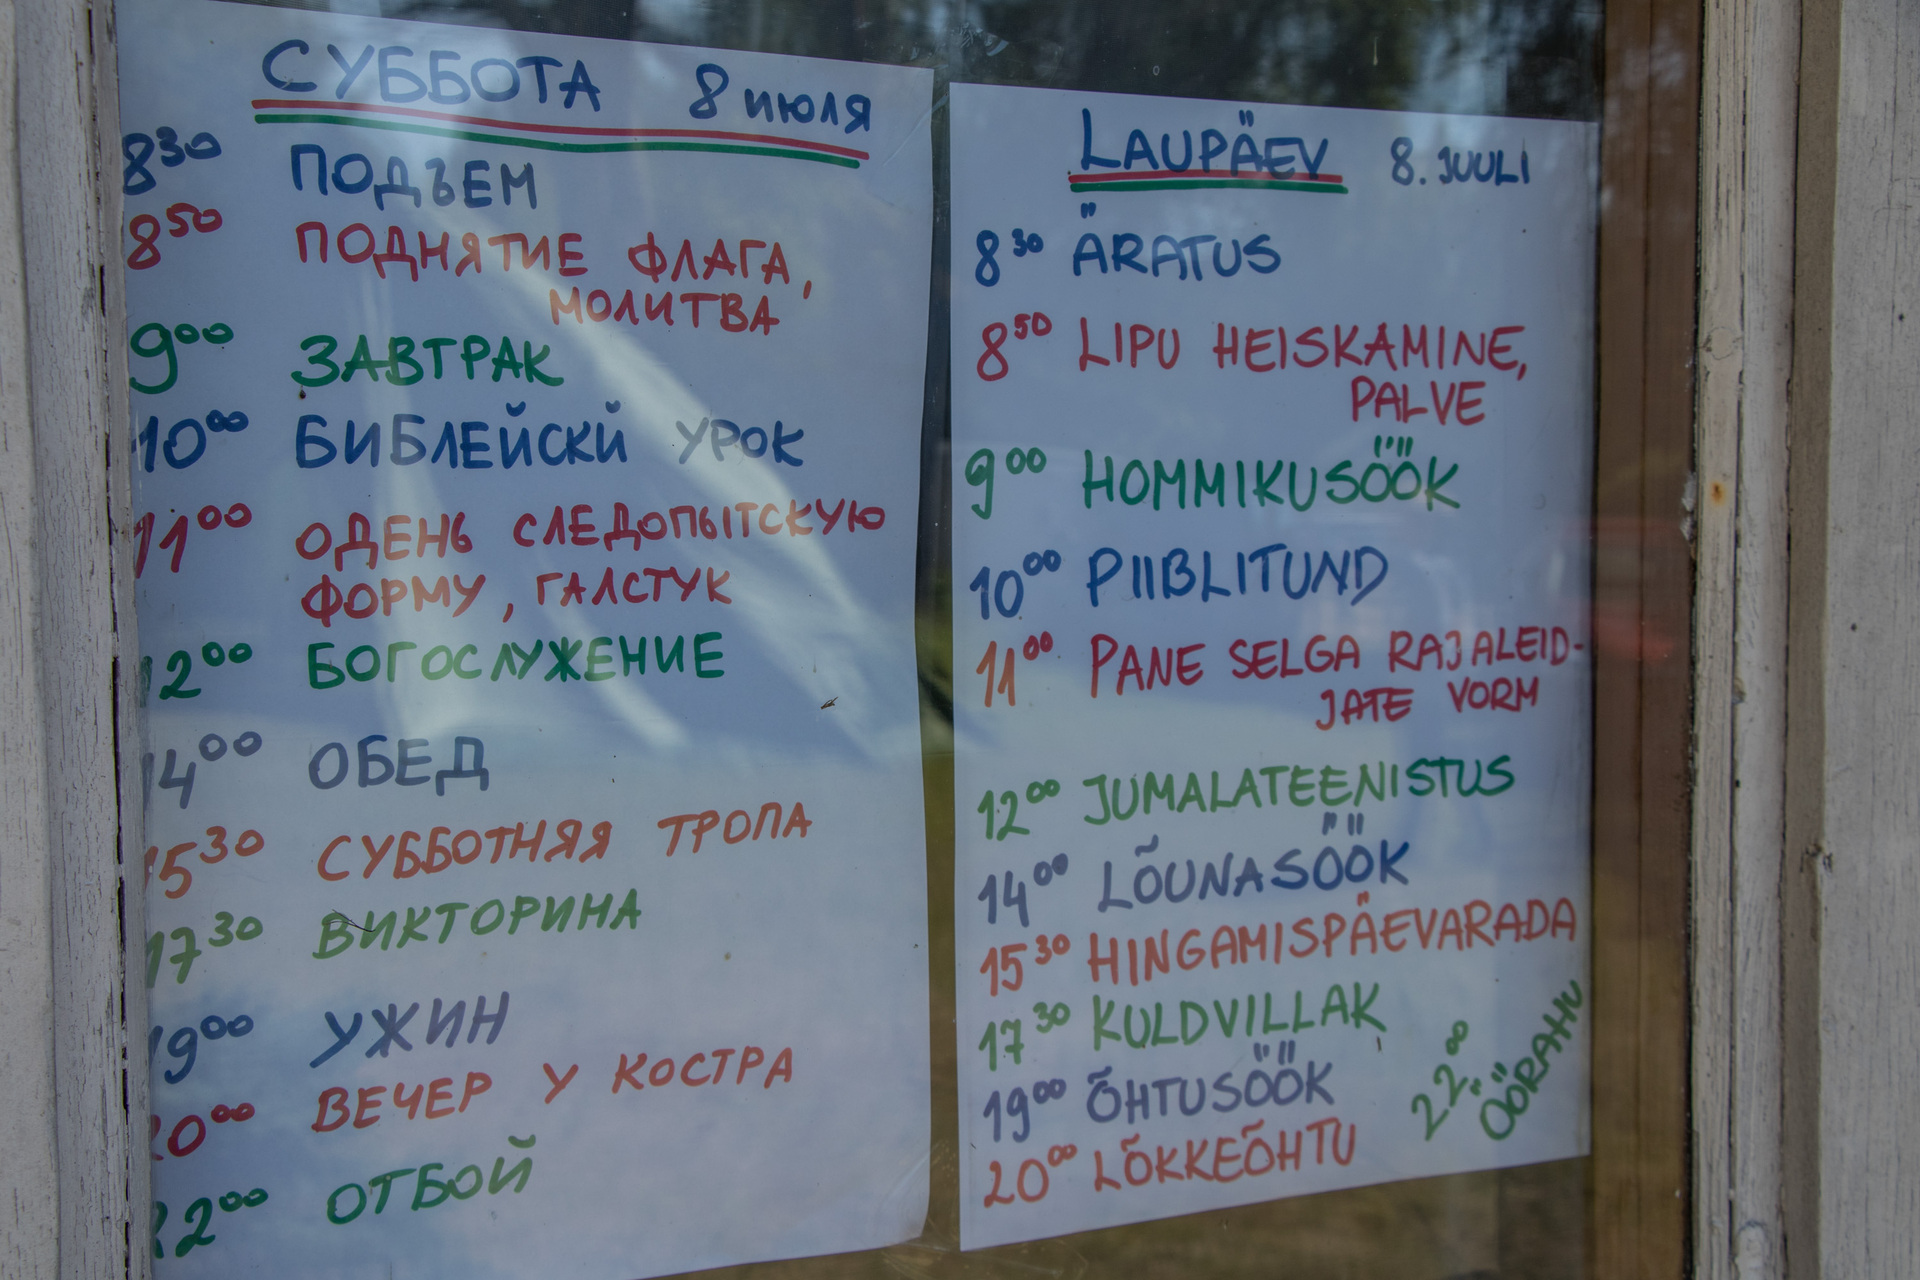 СУББОТА 8 июля
8³⁰ ПОДЪЕМ
8⁵⁰ ПОДНЯТИЕ ФЛАГА,
МОЛИТВА
9⁰⁰ ЗАВТРАК
10⁰⁰ БИБЛЕЙСКЙ УРОК
11⁰⁰ ОДЕНЬ СЛЕДОПЫТСКУЮ
ФОРМУ, ГАЛСТУК
12⁰⁰ БОГОСЛУЖЕНИЕ
14⁰⁰ ОБЕД
15³⁰ СУББОТНЯЯ ТРОПА
17³⁰ ВИКТОРИНА
19⁰⁰ УЖИН
20⁰⁰ ВЕЧЕР У КОСТРА
22⁰⁰ ОТБОЙ
LAUPÄEV 8. JUULI
8³⁰ ÄRATUS
8⁵⁰ LIPU HEISKAMINE,
PALVE
9⁰⁰ HOMMIKUSÖÖK
10⁰⁰ PIIBLITUND
11⁰⁰ PANE SELGA RAJALEID-
JATE VORM
12⁰⁰ JUMALATEENISTUS
14⁰⁰ LÕUNASÖÖK
15³⁰ HINGAMISPÄEVARADA
17³⁰ KULDVILLAK
19⁰⁰ ÕHTUSÖÖK
20⁰⁰ LÕKKEÕHTU
22⁰⁰
ÖÖRAHU